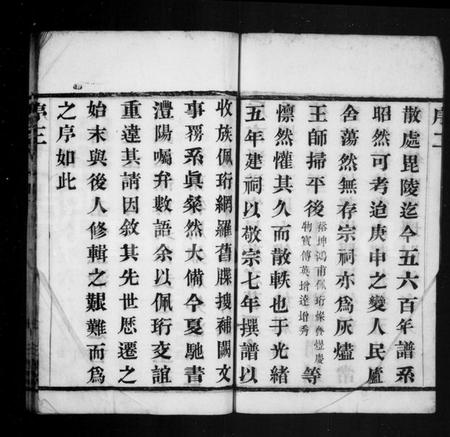 序二
散處毘陵迄今五六百年譜系
昭然可考迨庚申之變人民廬
舍蕩然無存宗祠亦為灰燼
王師掃平後裕坤鴻甫佩珩燦魯愷慶物寅傳英增達增秀等
懍然懼其久而散軼也于光緒
五年建祠以敬宗七年撰譜以
收族佩珩網羅舊牒搜補闕文
事務系眞粲然大備今夏馳書
澧陽囑弁數語余以佩珩交誼
重違其請因敘其先世厯遷之
始末與後人修輯之艱難而為
之序如此
序三